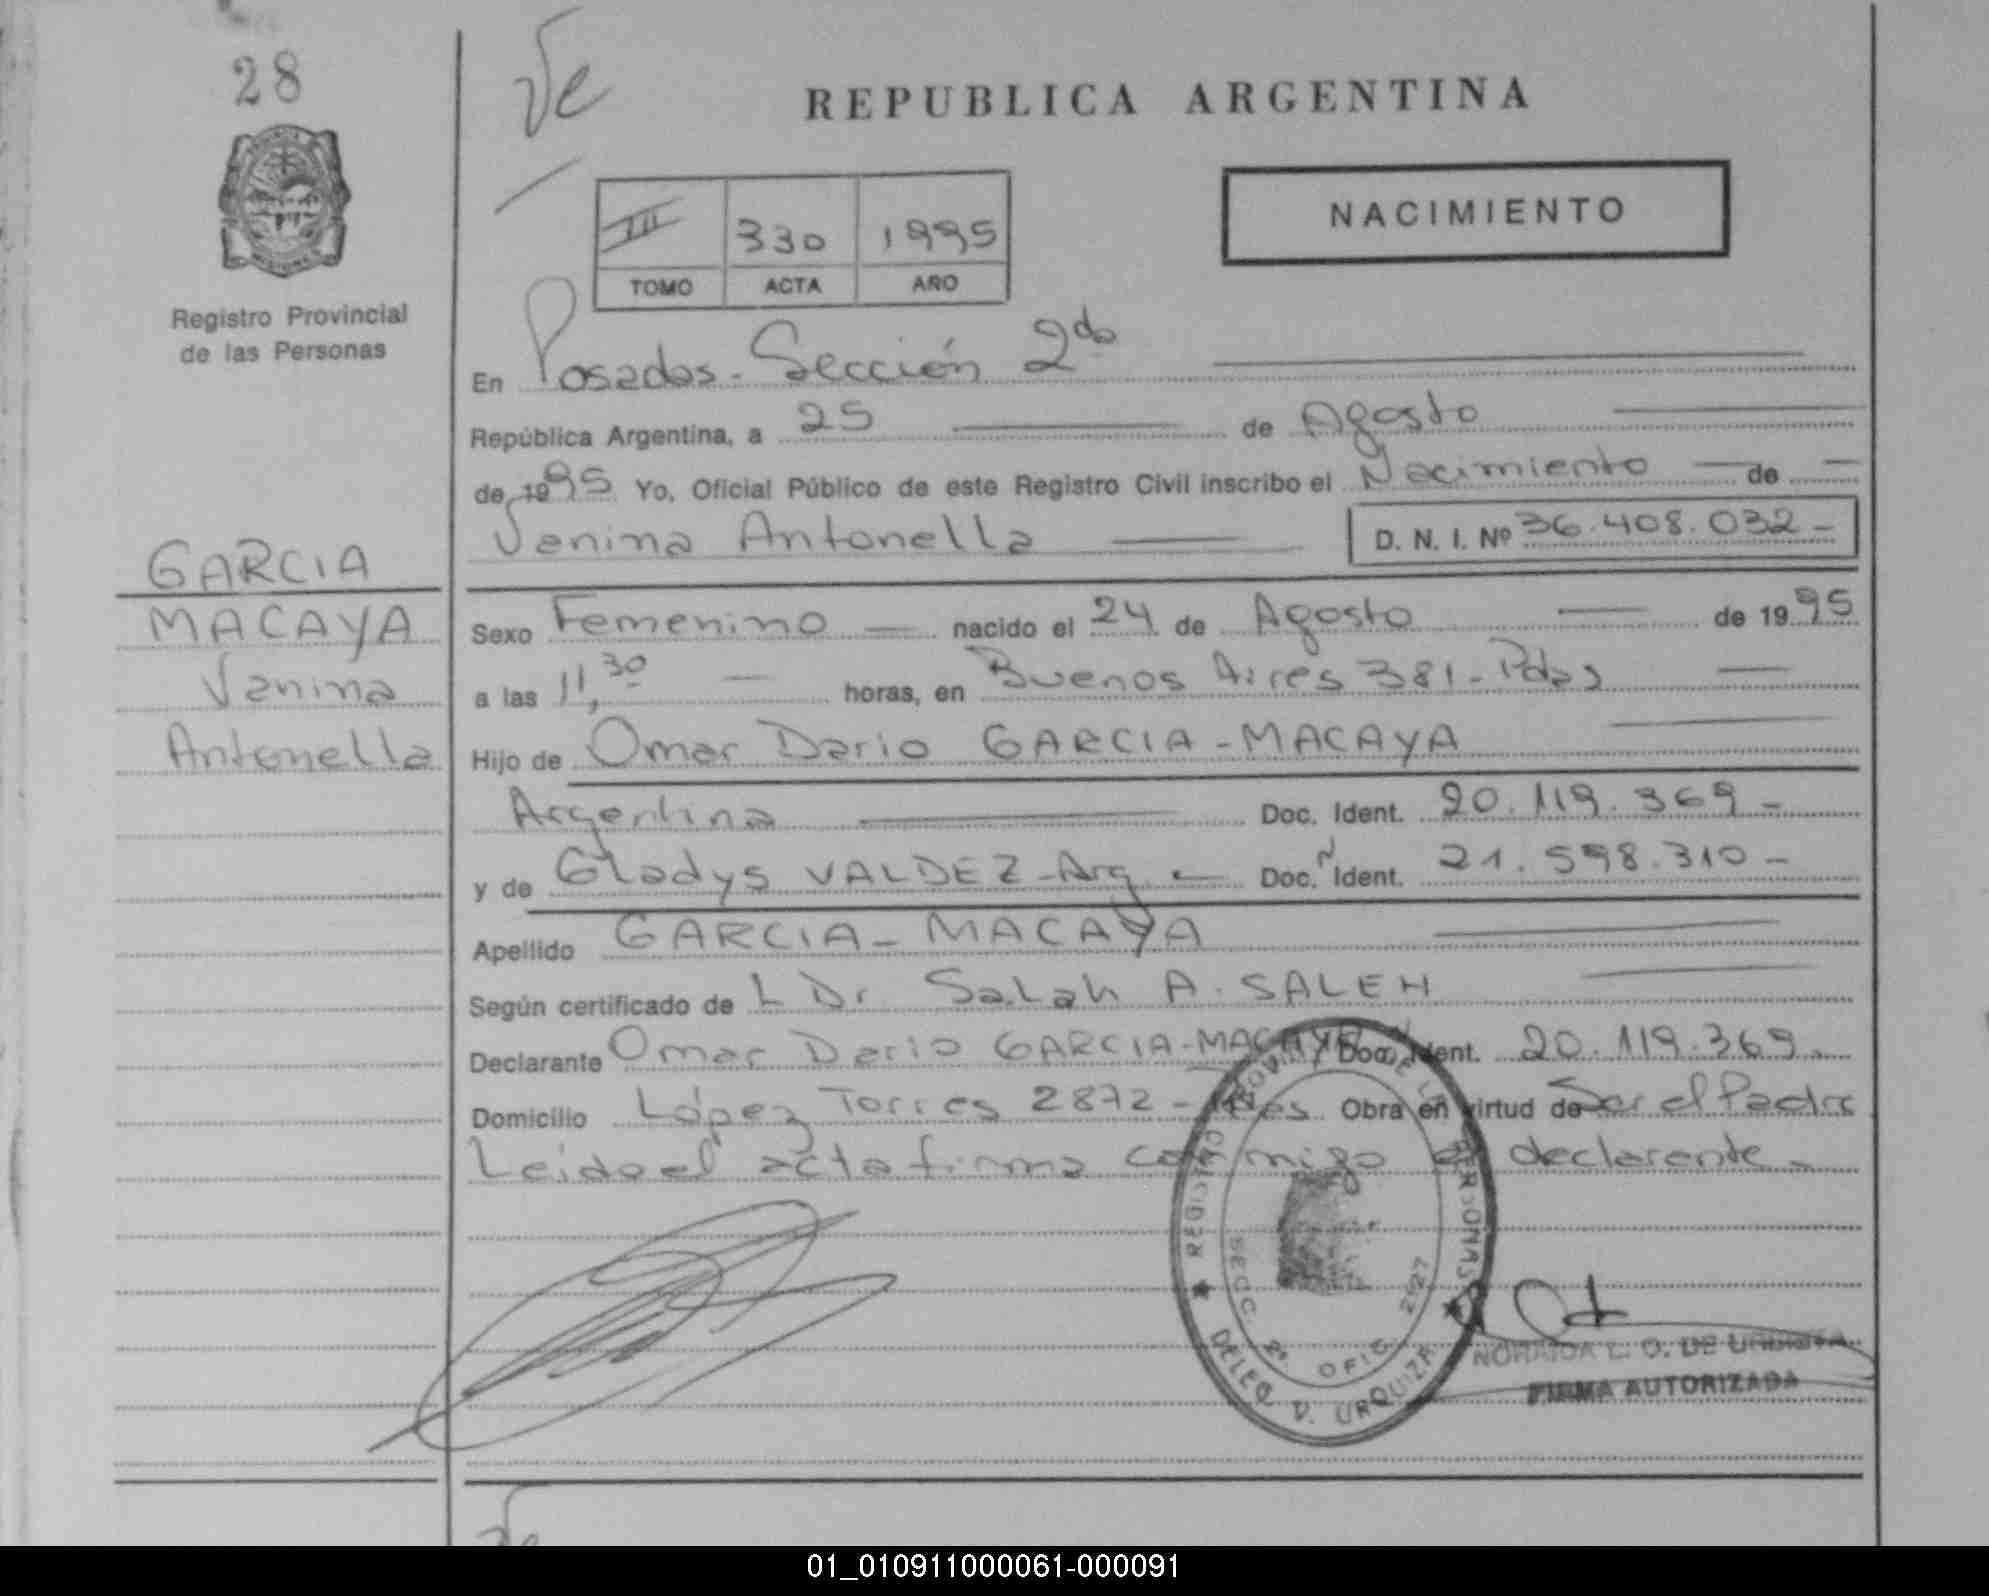 28
Ve
REPUBLICA ARGENTINA
NACIMIENTO
III 330 1995
TOMO ACTA AÑO
Registro Provincial
de las Personas
En Posadas - Sección 2da
República Argentina, a 25 de Agosto
de 1995 Yo, Oficial Público de este Registro Civil inscribo el Nacimiento de
Vanina Antonella D. N. I. Nº 36.408.032-
GARCIA
MACAYA
Vanina
Antonella
Sexo Femenino nacido el 24 de Agosto de 1995
a las 11,30 horas, en Buenos Aires 381 - Pdas
Hijo de Omar Dario GARCIA - MACAYA
Argentina Doc. Ident. 20.119.369-
y de Gladys VALDEZ - Arg. Doc. Ident. 21.598.310-
Apellido GARCIA - MACAYA
Según certificado de L Dr Salah A. SALEH
Declarante Omar Dario GARCIA-MACAYA Doc. Ident. 20.119.369.
Domicilio López Torres 2872 - Obra en virtud de Ser el Padre
Leida el acta firma conmigo el declarante.
REGISTRO PROVINCIAL DE LAS PERSONAS
SECC. 2ª OFIC. 2627
DELEG. V. URQUIZA
L. O. DE
FIRMA AUTORIZADA
01_010911000061-000091